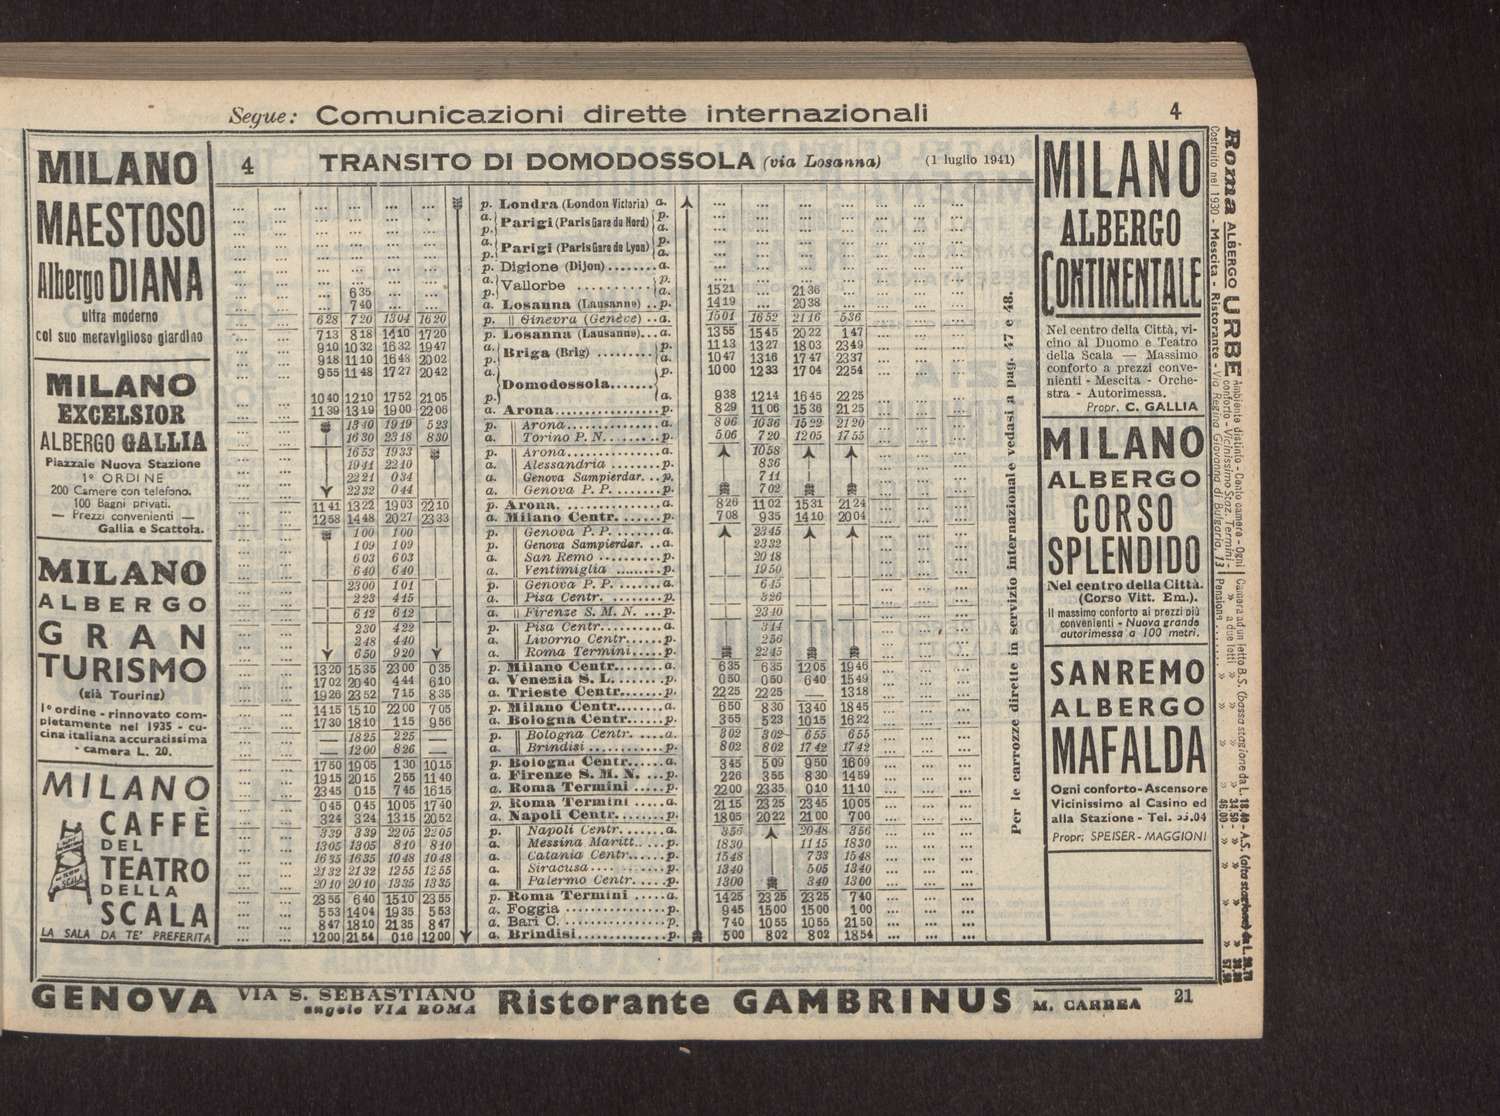 Segue: Comunicazioni dirette internazionali 4
MILANO
MAESTOSO
Albergo DIANA
ultra moderno
col suo meraviglioso giardino
MILANO
EXCELSIOR
ALBERGO GALLIA
Piazzale Nuova Stazione
1º ORDINE
200 Camere con telefono.
100 Bagni privati.
— Prezzi convenienti —
Gallia e Scattola.
MILANO
ALBERGO
GRAN
TURISMO
(già Touring)
1º ordine - rinnovato com-
pletamente nel 1935 - cu-
cina italiana accuratissima
- camera L. 20.
MILANO
CAFFÈ
DEL
TEATRO
DELLA
SCALA
LA SALA DA TE' PREFERITA
4 TRANSITO DI DOMODOSSOLA (via Losanna) (1 luglio 1941)
... ... ... ... ... ... p. Londra (London Victoria) a. ... ... ... ... ... ... ...
a. Parigi (Paris Gare du Nord) p.
p. a.
a. Parigi (Paris Gare de Lyon) p.
p. a.
p. Digione (Dijon)........a.
a. Vallorbe ..........p.
... 6 35 ... ... p. a. 15 21 ... 21 36 ...
... 7 40 ... ... a. Losanna (Lausanne) ..p. 14 19 ... 20 38 ...
6 28 7 20 13 04 16 20 p. Ginevra (Genève) ..a. 15 01 16 52 21 16 5 36
7 13 8 18 14 10 17 20 p. Losanna (Lausanne)...a. 13 55 15 45 20 22 1 47
9 10 10 32 16 32 19 47 a. Briga (Brig) .........p. 11 13 13 27 18 03 23 49
9 18 11 10 16 48 20 02 p. a. 10 47 13 16 17 47 23 37
9 55 11 48 17 27 20 42 a. Domodossola.......p. 10 00 12 33 17 04 22 54
10 40 12 10 17 52 21 05 p. a. 9 38 12 14 16 45 22 25
11 39 13 19 19 00 22 06 a. Arona................p. 8 29 11 06 15 36 21 25
13 40 19 19 5 23 p. Arona...............a. 8 06 10 36 15 22 21 20
16 30 23 18 8 30 a. Torino P. N..........p. 5 06 7 20 12 05 17 55
16 53 19 33 p. Arona...............a. 10 58
19 41 22 10 a. Alessandria .........p. 8 36
22 21 0 34 a. Genova Sampierdar. ..p. 7 11
22 32 0 44 a. Genova P. P. ........p. 7 02
11 41 13 22 19 03 22 10 p. Arona................a. 8 26 11 02 15 31 21 24
12 58 14 48 20 27 23 33 a. Milano Centr. .......p. 7 08 9 35 14 10 20 04
1 00 1 00 p. Genova P. P. ........a. 23 45
1 09 1 09 a. Genova Sampierdar. ..a. 23 32
6 03 6 03 a. San Remo ..........p. 20 18
6 40 6 40 a. Ventimiglia .........p. 19 50
23 00 1 01 p. Genova P. P. ........a. 6 45
2 23 4 45 a. Pisa Centr. .........p. 3 26
6 12 6 12 a. Firenze S. M. N. ...p. 23 40
2 30 4 22 p. Pisa Centr. .........a. 3 14
2 48 4 40 a. Livorno Centr.......p. 2 56
6 50 9 20 a. Roma Termini......p. 22 45
13 20 15 35 23 00 0 35 p. Milano Centr........a. 6 35 6 35 12 05 19 46
17 02 20 40 4 44 6 10 a. Venezia S. L. ......p. 0 50 0 50 6 40 15 49
19 26 23 52 7 15 8 35 a. Trieste Centr.......p. 22 25 22 25 — 13 18
14 15 15 10 22 00 7 05 p. Milano Centr........a. 6 50 8 30 13 40 18 45
17 30 18 10 1 15 9 56 a. Bologna Centr.......p. 3 55 5 23 10 15 16 22
— 18 25 2 25 — p. Bologna Centr. .....a. 3 02 3 02 6 55 6 55
— 12 00 8 26 — a. Brindisi ...........p. 8 02 8 02 17 42 17 42
17 50 19 05 1 30 10 15 p. Bologna Centr.......a. 3 45 5 09 9 50 16 09
19 15 20 15 2 55 11 40 a. Firenze S. M. N. ...p. 2 26 3 55 8 30 14 59
23 45 0 15 7 45 16 15 a. Roma Termini ......p. 22 00 23 35 0 10 11 10
0 45 0 45 10 05 17 40 p. Roma Termini ......a. 21 15 23 25 23 45 10 05
3 24 3 24 13 15 20 52 a. Napoli Centr. ......p. 18 05 20 22 21 00 7 00
3 39 3 39 22 05 22 05 p. Napoli Centr. ......a. 3 56 20 48 3 56
13 05 13 05 8 10 8 10 a. Messina Maritt. ....p. 18 30 11 15 18 30
16 35 16 35 10 48 10 48 a. Catania Centr.......p. 15 48 7 33 15 48
21 32 21 32 12 55 12 55 a. Siracusa............p. 13 40 5 05 13 40
20 10 20 10 13 35 13 35 a. Palermo Centr.......p. 13 00 3 40 13 00
23 55 6 40 15 10 23 55 p. Roma Termini .....a. 14 25 23 25 23 25 7 40
5 53 14 04 19 35 5 53 a. Foggia ..............p. 9 45 15 00 15 00 1 00
8 47 18 10 21 35 8 47 a. Bari C. .............p. 7 40 10 55 10 55 21 50
12 00 21 54 0 16 12 00 a. Brindisi.............p. 5 00 8 02 8 02 18 54
Per le carrozze dirette in servizio internazionale vedasi a pag. 47 e 48.
MILANO
ALBERGO
CONTINENTALE
Nel centro della Città, vi-
cino al Duomo e Teatro
della Scala — Massimo
conforto a prezzi conve-
nienti - Mescita - Orche-
stra - Autorimessa.
Propr. C. GALLIA
MILANO
ALBERGO
CORSO
SPLENDIDO
Nel centro della Città.
(Corso Vitt. Em.).
Il massimo conforto ai prezzi più
convenienti - Nuova grande
autorimessa a 100 metri.
SANREMO
ALBERGO
MAFALDA
Ogni conforto - Ascensore
Vicinissimo al Casino ed
alla Stazione - Tel.
Propr: SPEISER - MAGGIONI
Roma ALBERGO URBE Ambiente distinto - Cento camere - Ogni conforto - Vicinissimo Staz. Termini -
Costruito nel 1930 - Mescita - Ristorante - Via Regina Giovanna di Bulgaria, 13
Camera ad un letto B.S. (bassa stagione) da L.
» a due letti
Pensione
GENOVA VIA S. SEBASTIANO angolo VIA ROMA Ristorante GAMBRINUS M. CARREA 21